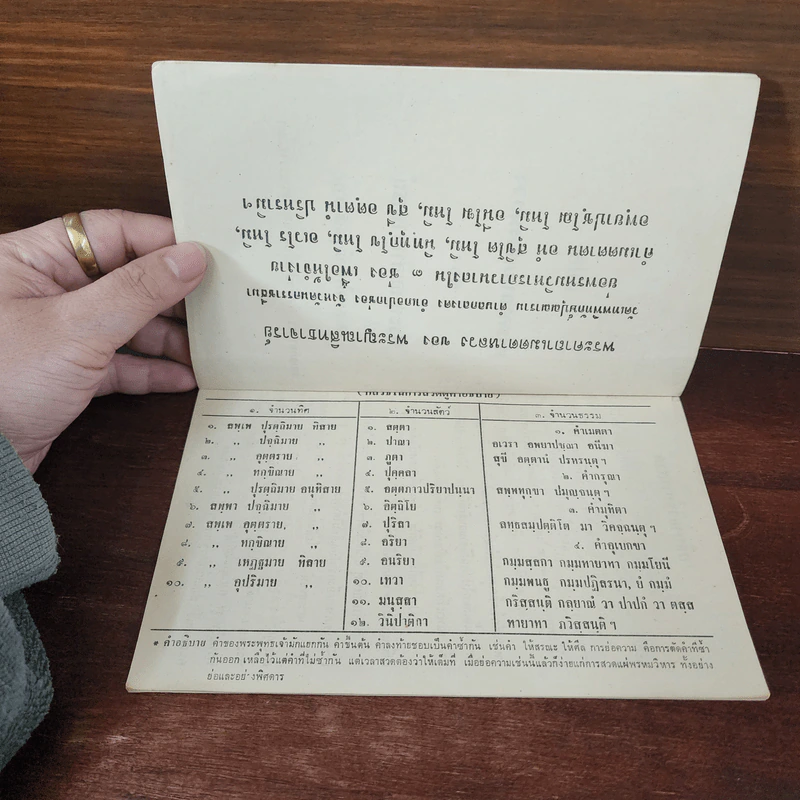 พระคาถาเมตตาหลวง ของ พระญาณสิทธาจารย์
วัดเทพพิทักษ์ปุณณาราม ตำบลกลางดง อำเภอปากช่อง จังหวัดนครราชสีมา
ย่อพรหมวิหารภาวนาลงใน ๓ ช่อง เพื่อให้จำง่าย
ทำเมตตาตน อหํ สุขิโต โหมิ, นิทฺทุกฺโข โหมิ, อเวโร โหมิ,
อพฺยาปชฺโฌ โหมิ, อนีโฆ โหมิ, สุขี อตฺตานํ ปริหรามิฯ
๑. จำนวนทิศ
๑. สพฺเพ ปุรตฺถิมาย ทิสาย
๒. ,, ปจฺฉิมาย ,,
๓. ,, อุตฺตราย ,,
๔. ,, ทกฺขิณาย ,,
๕. ,, ปุรตฺถิมาย อนุทิสาย
๖. สพฺพา ปจฺฉิมาย ,,
๗. สพฺเพ อุตฺตราย, ,,
๘. ,, ทกฺขิณาย ,,
๙. ,, เหฏฺฐิมาย ทิสาย
๑๐. ,, อุปริมาย ,,
๒. จำนวนสัตว์
๑. สตฺตา
๒. ปาณา
๓. ภูตา
๔. ปุคฺคลา
๕. อตฺตภาวปริยาปนฺนา
๖. อิตฺถิโย
๗. ปุริสา
๘. อริยา
๙. อนริยา
๑๐. เทวา
๑๑. มนุสฺสา
๑๒. วินิปาติกา
๓. จำนวนธรรม
๑. คำเมตตา
อเวรา อพยาปชฺฌา อนีฆา
สุขี อตฺตานํ ปริหรนฺตุ ฯ
๒. คำกรุณา
สพฺพทุกฺขา ปมุญฺจนฺตุ ฯ
๓. คำมุทิตา
ลทฺธสมฺปตฺติโต มา วิคจฺฉนฺตุ ฯ
๔. คำอุเบกขา
กมฺมสฺสกา กมฺมทายาทา กมฺมโยนี
กมฺมพนฺธู กมฺมปฏิสรณา, ยํ กมฺมํ
กริสฺสนฺติ กลฺยาณํ วา ปาปกํ วา ตสฺส
ทายาทา ภวิสฺสนฺติ ฯ
* คำอธิบาย คำของพระพุทธเจ้ามักแยกกัน คำขึ้นต้น คำลงท้ายชอบเป็นคำซ้ำกัน เช่นคำ ให้สรณะ ให้ศีล การย่อความ คือการตัดคำที่ซ้ำ
กันออก เหลือไว้แต่คำที่ไม่ซ้ำกัน แต่เวลาสวดต้องว่าให้เต็มที่ เมื่อย่อความเช่นนี้แล้วก็ง่ายแก่การสวดแผ่พรหมวิหาร ทั้งอย่าง
ย่อและอย่างพิศดาร